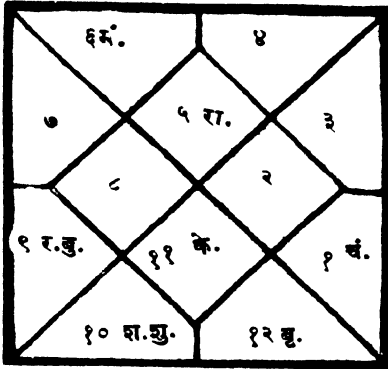 ६ मं. ४
५ रा.
७ ३
८ २
९ र. बु. ११ के. १ चं.
१० श. शु. १२ बृ.